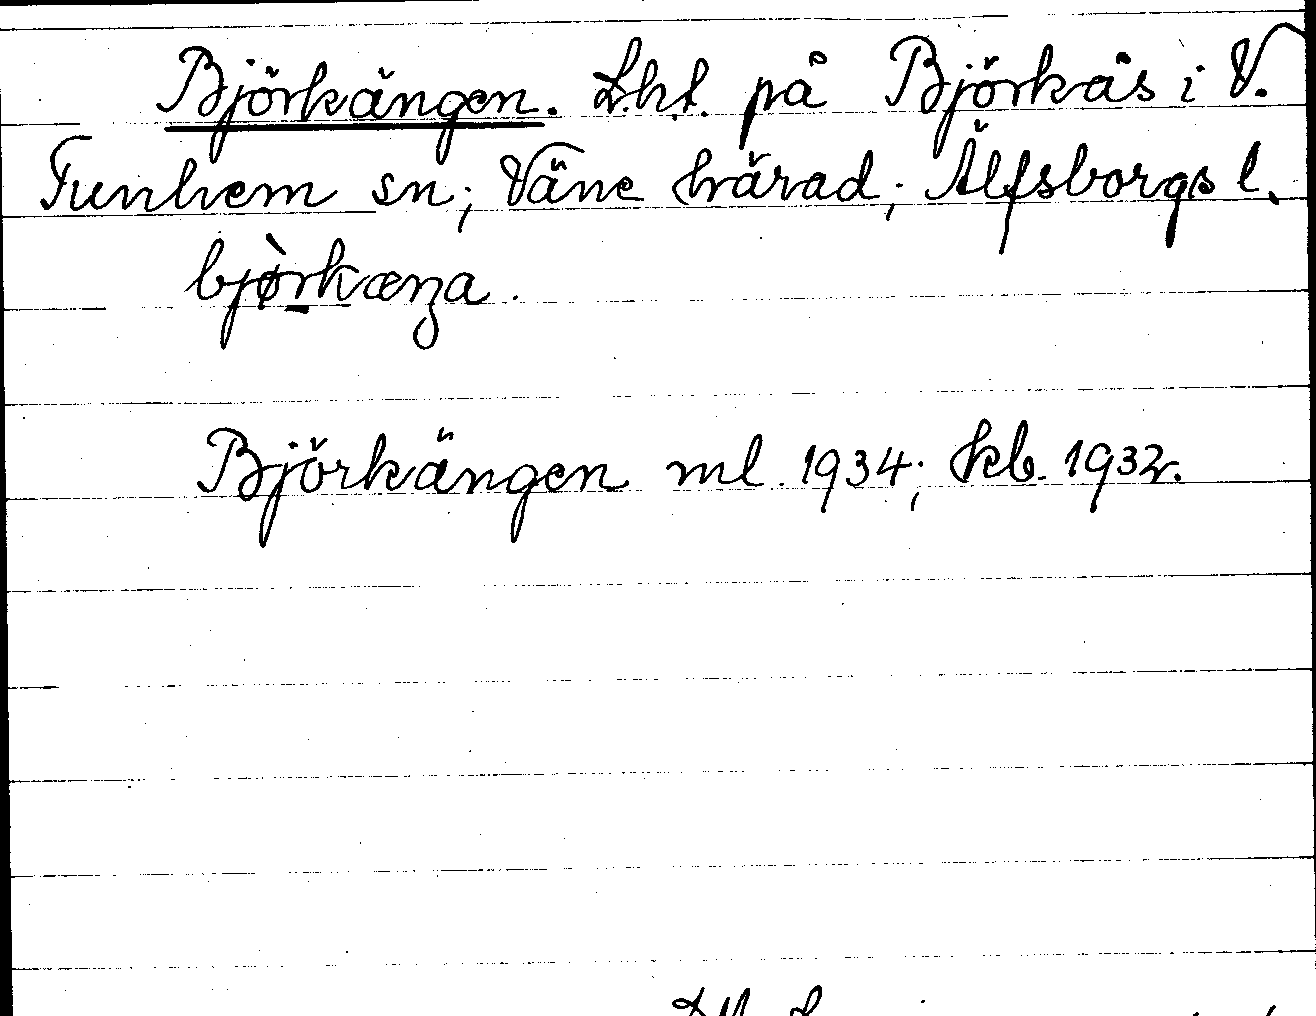 Björkängen. Lht. på Björkås i V.
Tunhem sn; Väne härad; Älfsborgs l.
bjø̀rkæŋa.
Björkängen ml. 1934; kb. 1932.